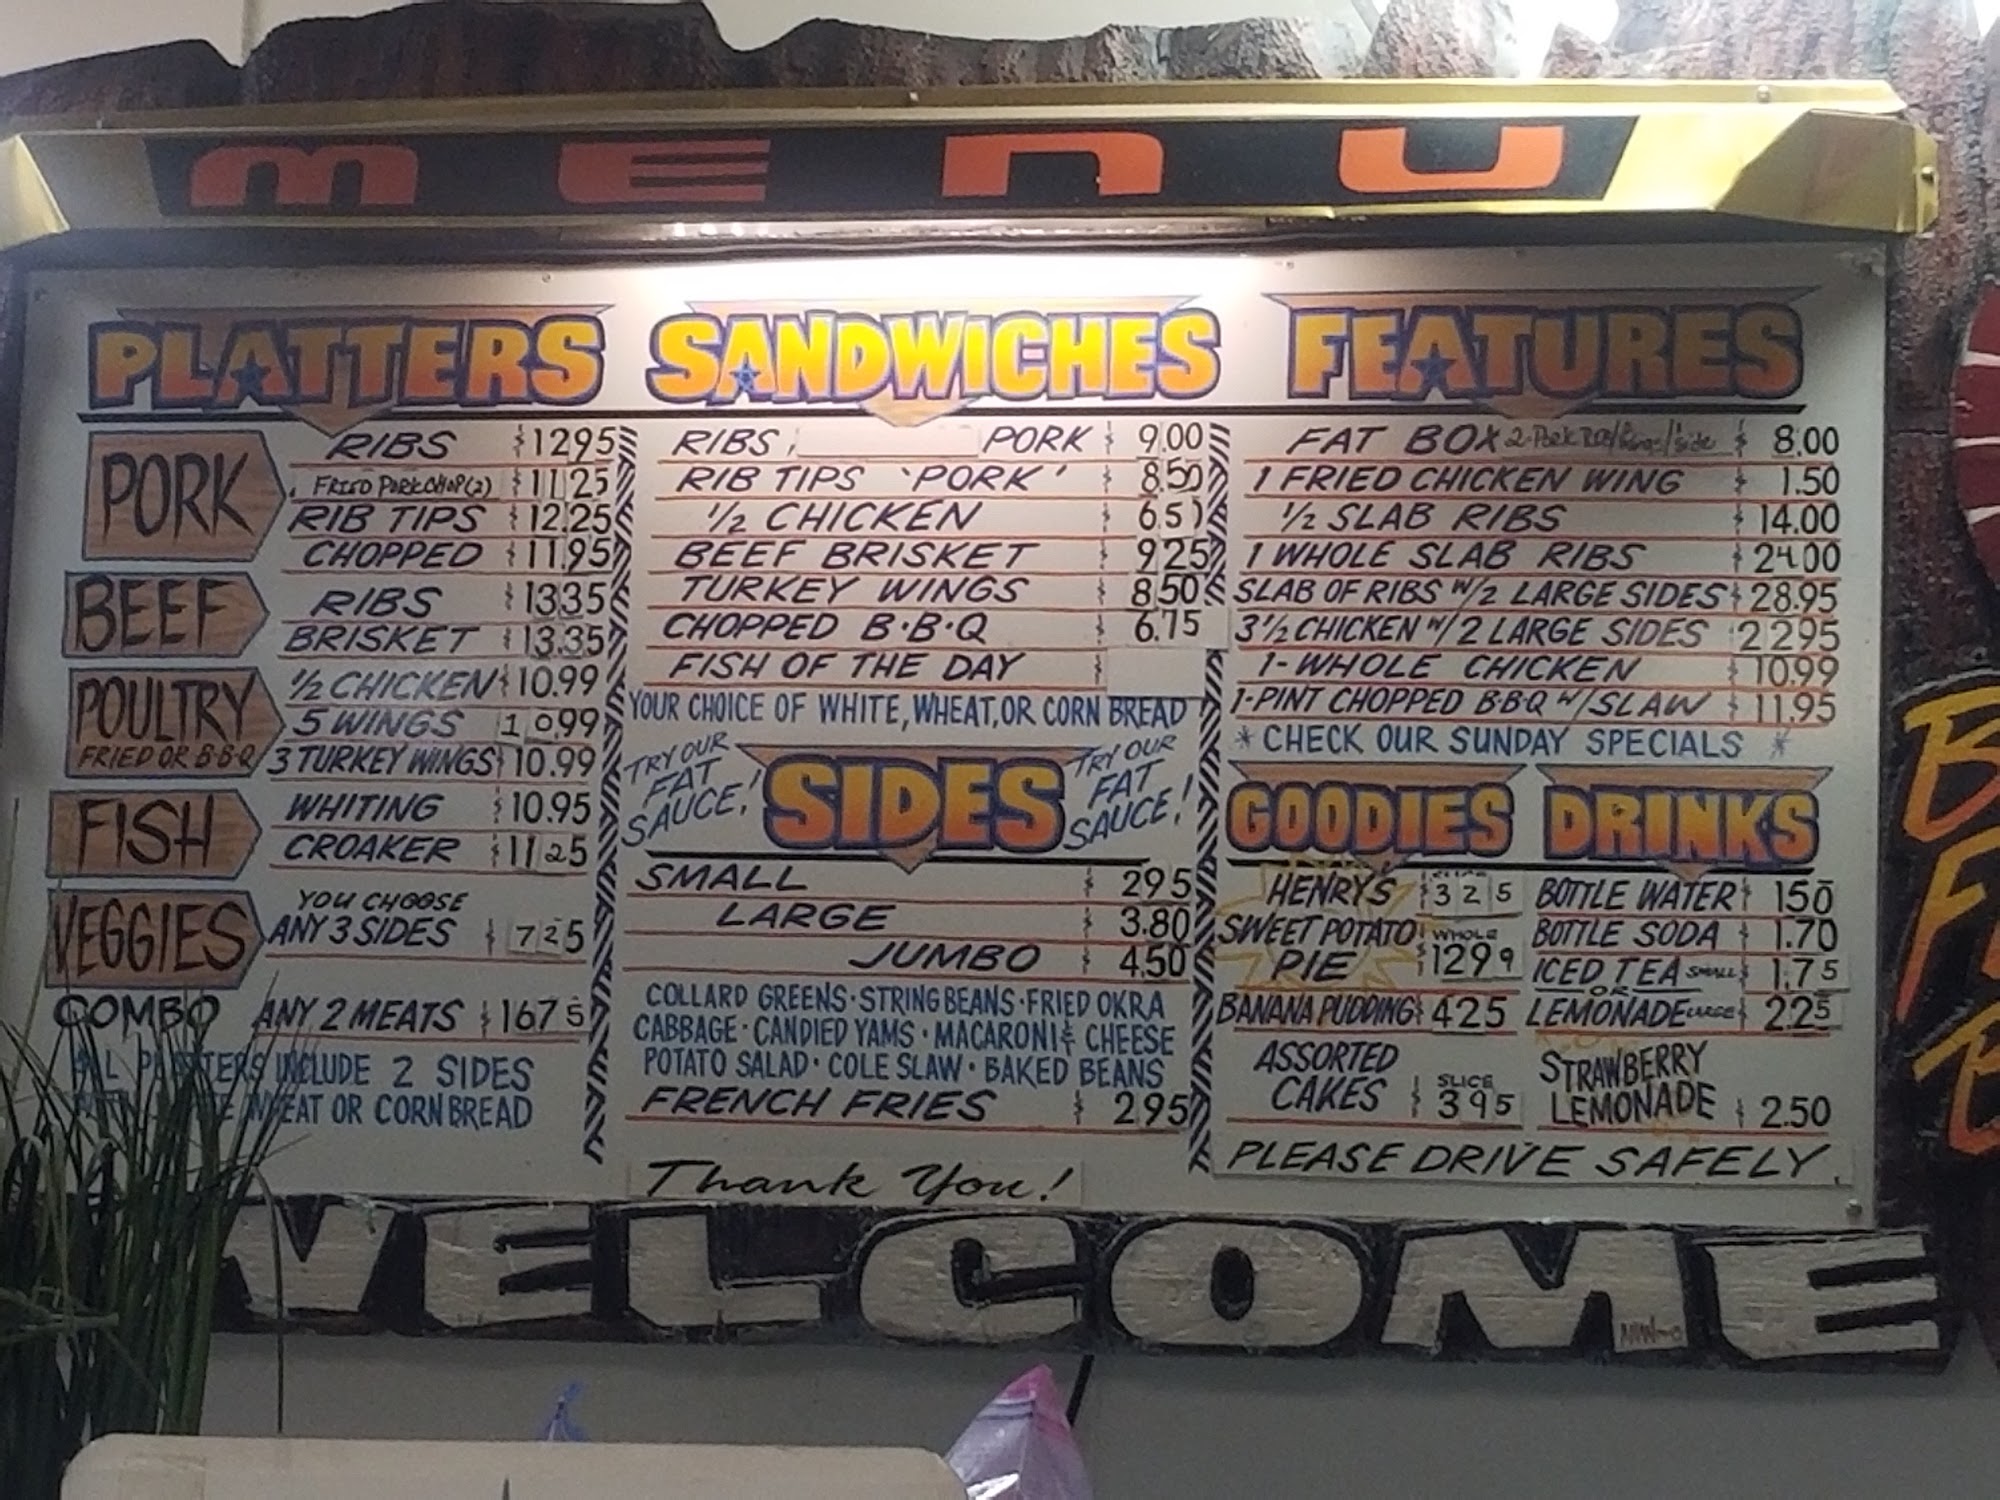 MENU
PLATTERS
PORK
RIBS $12.95
FRIED PORK CHOP (2) $11.25
RIB TIPS $12.25
CHOPPED $11.95
BEEF
RIBS $13.35
BRISKET $13.35
POULTRY
FRIED OR B·B·Q
1/2 CHICKEN $10.99
5 WINGS 10.99
3 TURKEY WINGS $10.99
FISH
WHITING $10.95
CROAKER $11.25
VEGGIES
YOU CHOOSE
ANY 3 SIDES $7.25
COMBO ANY 2 MEATS $16.75
ALL PLATTERS INCLUDE 2 SIDES
WHEAT OR CORN BREAD
SANDWICHES
RIBS, PORK $9.00
RIB TIPS 'PORK' $8.50
1/2 CHICKEN $6.50
BEEF BRISKET $9.25
TURKEY WINGS $8.50
CHOPPED B·B·Q $6.75
FISH OF THE DAY $
YOUR CHOICE OF WHITE, WHEAT, OR CORN BREAD
TRY OUR
FAT
SAUCE!
SIDES
TRY OUR
FAT
SAUCE!
SMALL $2.95
LARGE $3.80
JUMBO $4.50
COLLARD GREENS · STRING BEANS · FRIED OKRA
CABBAGE · CANDIED YAMS · MACARONI & CHEESE
POTATO SALAD · COLE SLAW · BAKED BEANS
FRENCH FRIES $2.95
Thank You!
FEATURES
FAT BOX $8.00
1 FRIED CHICKEN WING $1.50
1/2 SLAB RIBS $14.00
1 WHOLE SLAB RIBS $24.00
SLAB OF RIBS W/2 LARGE SIDES $28.95
3 1/2 CHICKEN W/2 LARGE SIDES 22.95
1-WHOLE CHICKEN $10.99
1-PINT CHOPPED B·B·Q W/SLAW $11.95
* CHECK OUR SUNDAY SPECIALS *
GOODIES
HENRY'S $3 25
SWEET POTATO
PIE WHOLE $12.99
BANANA PUDDING $4.25
ASSORTED
CAKES SLICE $3.95
DRINKS
BOTTLE WATER $1.50
BOTTLE SODA $1.70
ICED TEA SMALL $1.75
OR
LEMONADE LARGE $2.25
STRAWBERRY
LEMONADE $2.50
PLEASE DRIVE SAFELY.
WELCOME